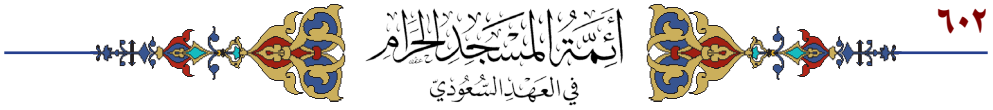 ٦٠٢
أَئِمَّةُ المَسْجِدِ الحَرَامِ
فِي العَهْدِ السُّعُودِيّ